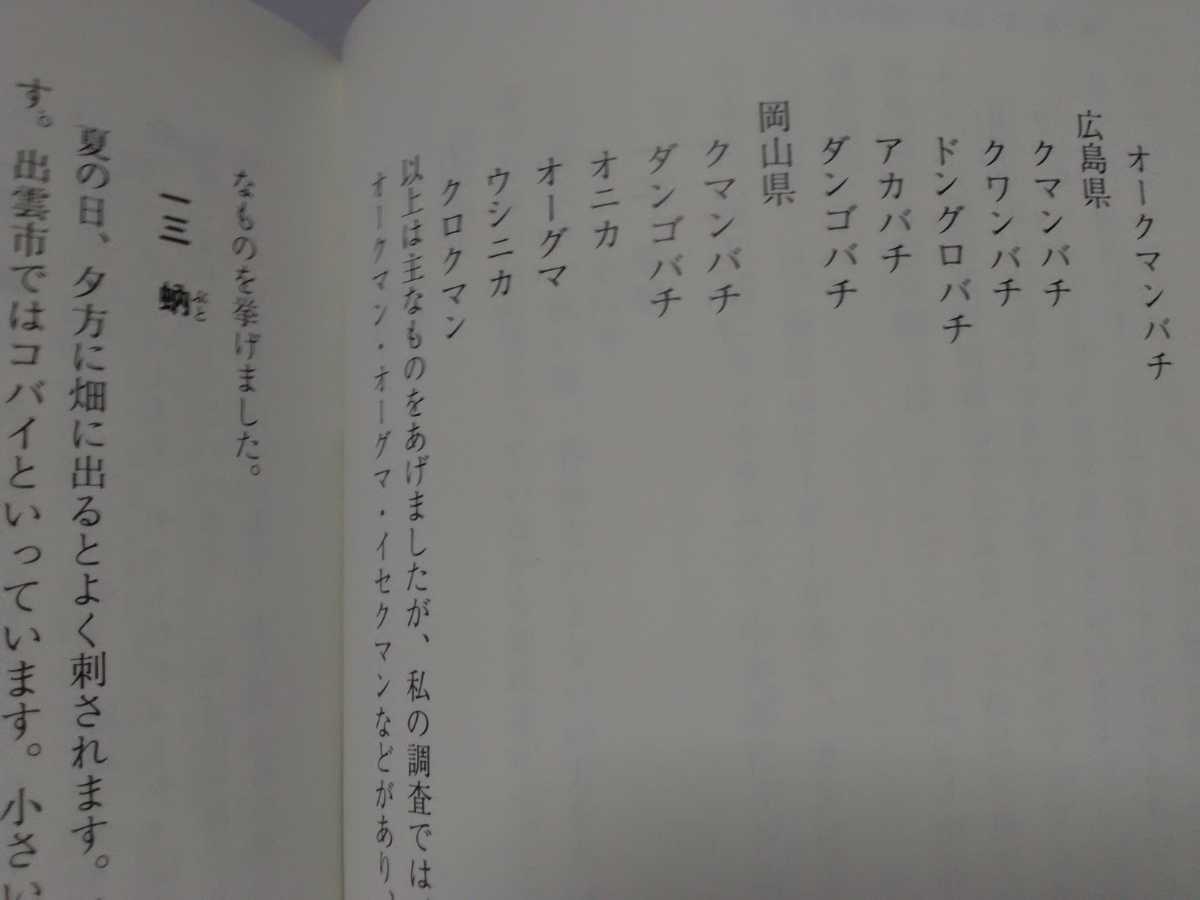 オークマンバチ
広島県
クマンバチ
クワンバチ
ドングロバチ
アカバチ
ダンゴバチ
岡山県
クマンバチ
ダンゴバチ
オニカ
オーグマ
ウシニカ
クロクマン
以上は主なものをあげましたが、私の調査では、
オークマン・オーグマ・イセクマンなどがあり、
なものを挙げました。
一三 蚋
ぶと
夏の日、夕方に畑に出るとよく刺されます。
す。出雲市ではコバイといっています。小さい